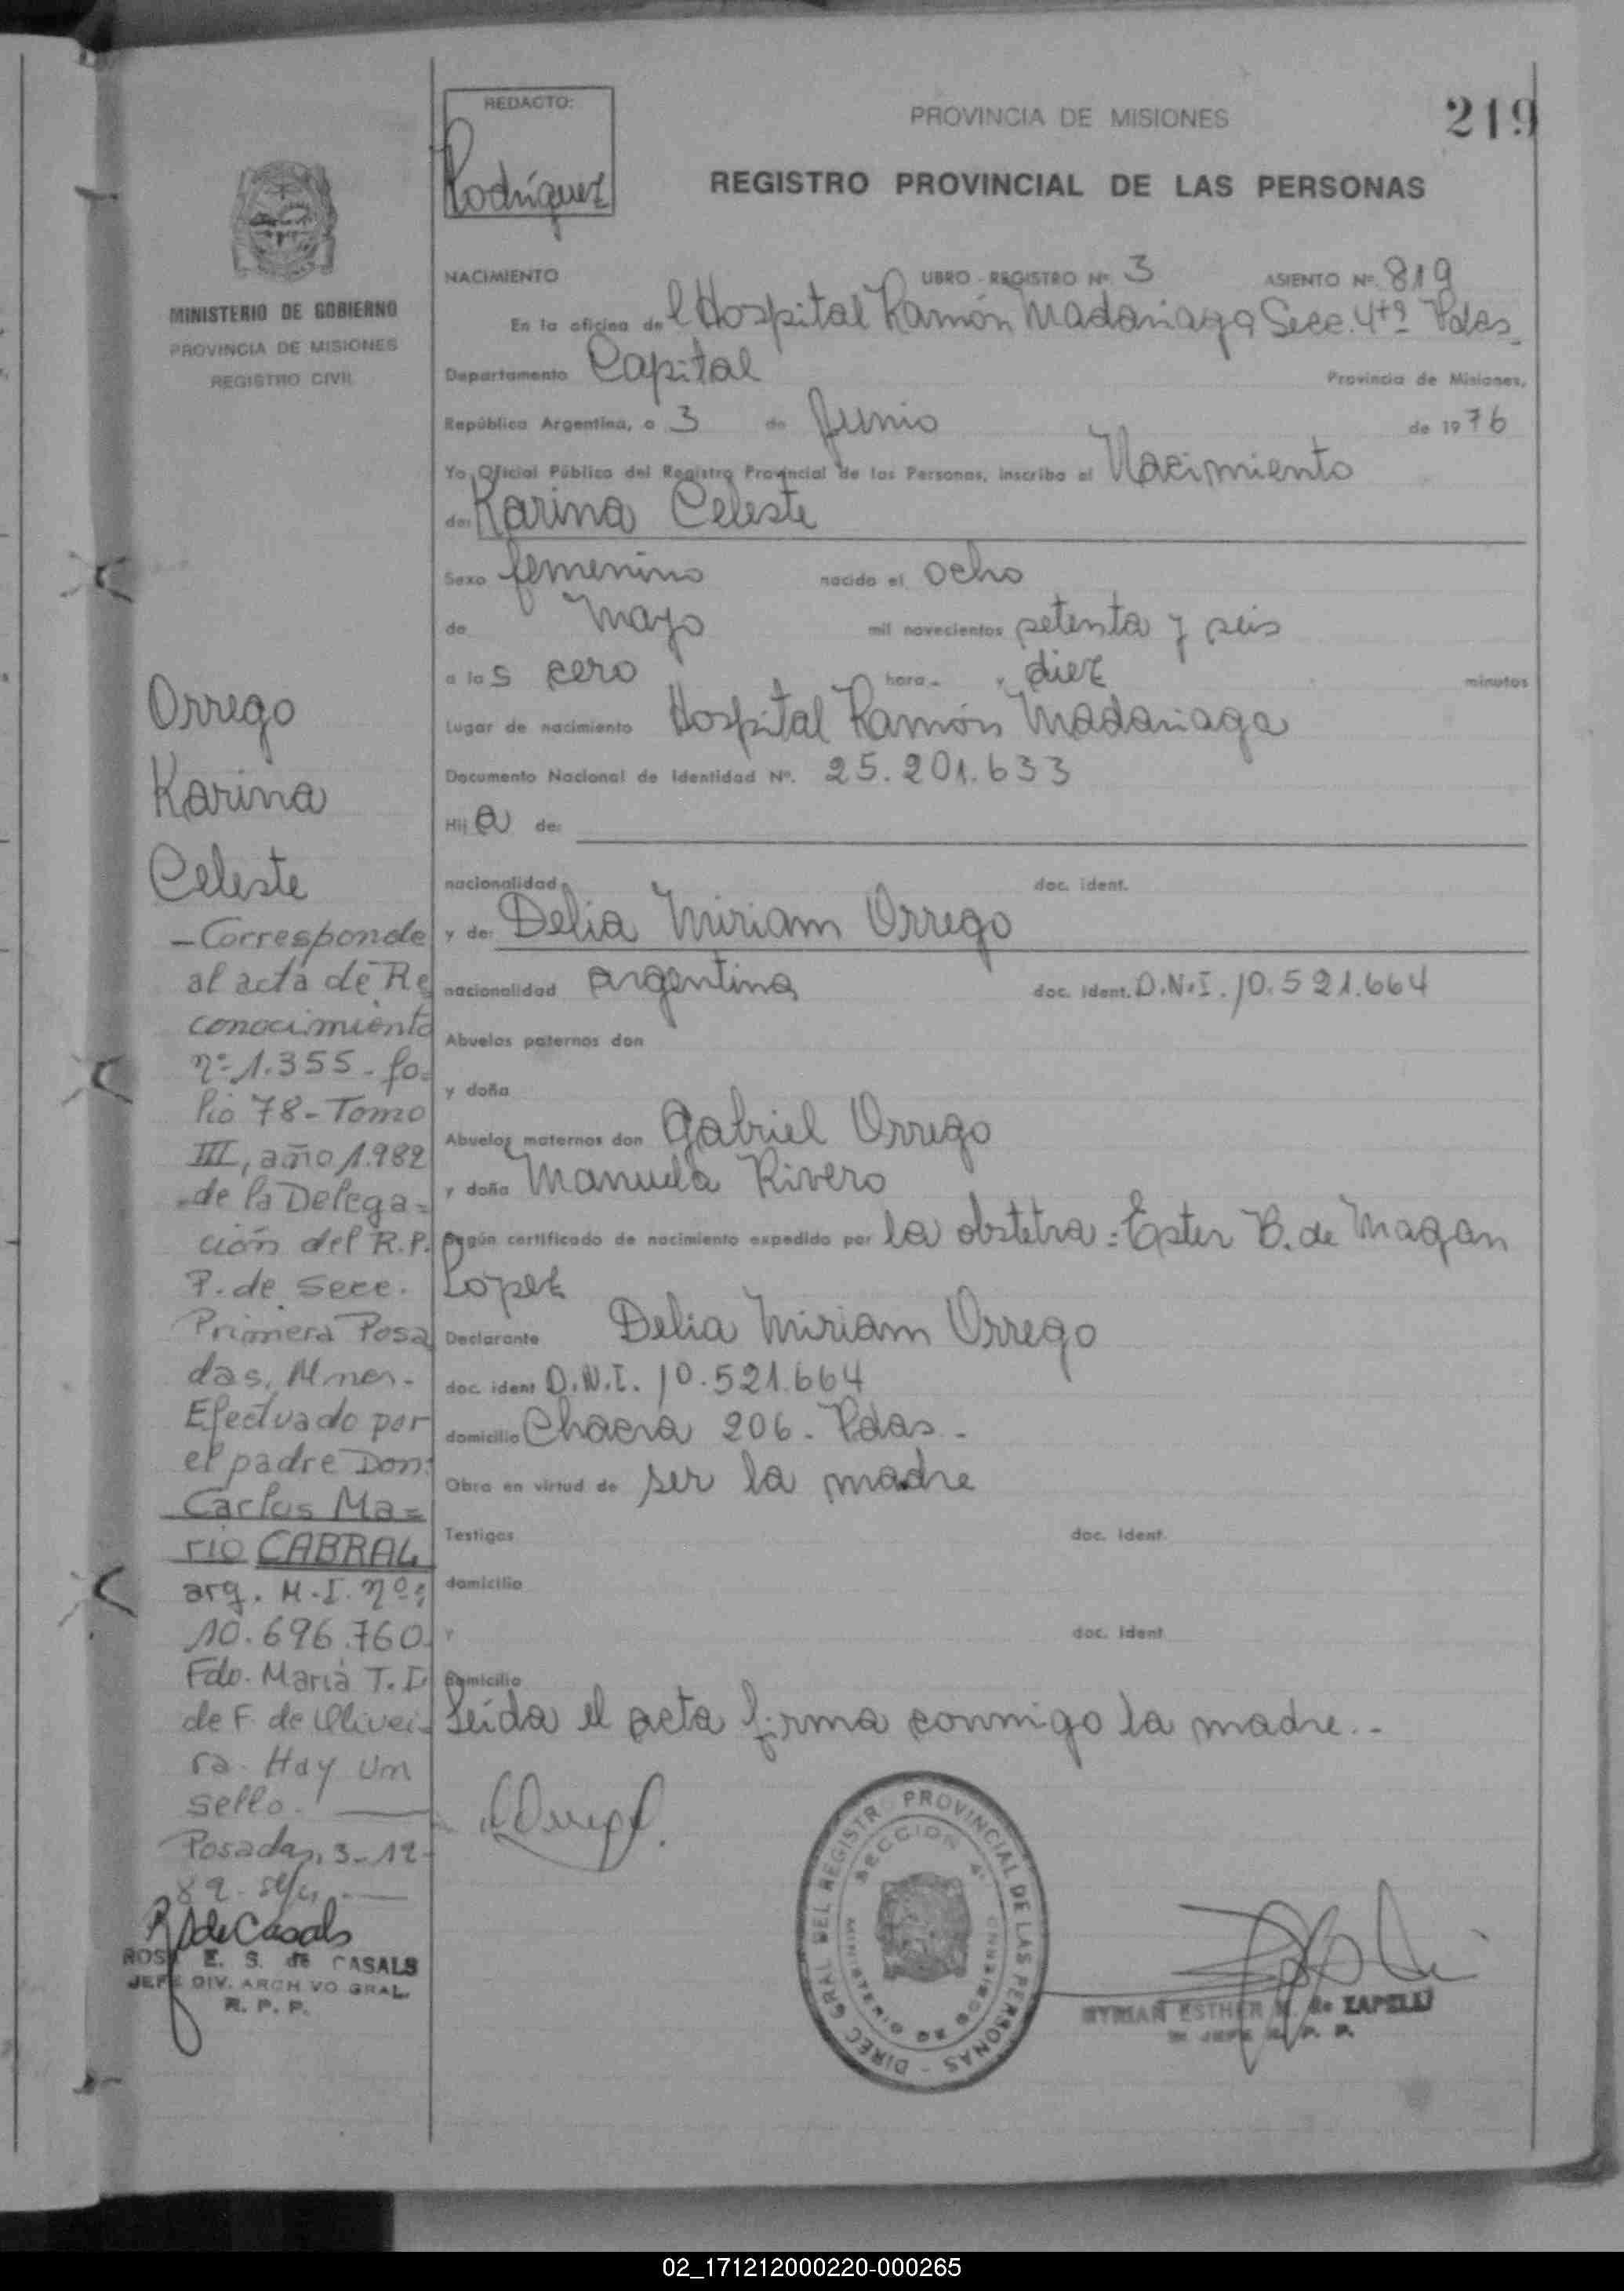 219
REDACTO:
Rodríguez
PROVINCIA DE MISIONES
REGISTRO PROVINCIAL DE LAS PERSONAS
MINISTERIO DE GOBIERNO
PROVINCIA DE MISIONES
REGISTRO CIVIL
Orrego
Karina
Celeste
- Corresponde
al acta de Re
conocimiento
nº 1.355 - fo-
lio 78 - Tomo
III, año 1.982
de la Delega=
ción del R.P.
P. de Secc.
Primera Posa
das, Mnes.-
Efectuado por
el padre Don:
Carlos Ma=
rio CABRAL
arg. M.I. nº:
10.696.760
Fdo. María T. I
de F. de Olivei-
ra. Hay un
sello.
Posadas, 3-12-
ROSA E. S. de CASALS
JEFE DIV. ARCHIVO GRAL.
R. P. P.
NACIMIENTO LIBRO - REGISTRO Nº 3 ASIENTO Nº 819
En la oficina del Hospital Ramón Madariaga Secc. 4tª Pdas
Departamento Capital Provincia de Misiones,
República Argentina, a 3 de Junio de 1976
Yo, Oficial Público del Registro Provincial de las Personas, inscribo el Nacimiento
de: Karina Celeste
Sexo femenino nacido el ocho
de Mayo mil novecientos setenta y seis
a las cero hora y diez minutos
Lugar de nacimiento Hospital Ramón Madariaga
Documento Nacional de Identidad Nº. 25.201.633
Hija de:
nacionalidad doc. ident.
y de: Delia Miriam Orrego
nacionalidad argentina doc. ident. D.N.I. 10.521.664
Abuelos paternos don
y doña
Abuelos maternos don Gabriel Orrego
y doña Manuela Rivero
Según certificado de nacimiento expedido por la obstetra: Ester B. de Magan
Lopez
Declarante Delia Miriam Orrego
doc. ident D.N.I. 10.521.664
domicilio Chacra 206. Pdas.-
Obra en virtud de ser la madre
Testigos doc. ident.
domicilio
y doc. ident
domicilio
Leída el acta firma conmigo la madre.-
DIREC GRAL DEL REGISTRO PROVINCIAL DE LAS PERSONAS -
SECCION 4ª
MINISTERIO DE GOBIERNO
MYRIAN ESTHER de ZAPELLI
JEFE R. P. P.
02_171212000220-000265